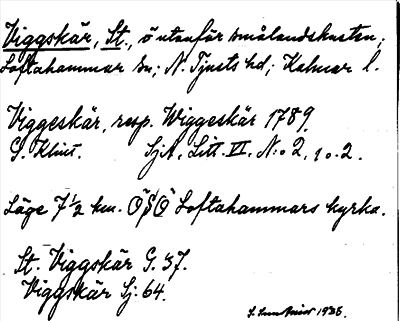 Viggskär, St., ö utanför smålandskusten;
Loftahammar sn; N. Tjusts hd; Kalmar l.
Viggeskär, resp. Wiggeskär 1789.
G. Klint. SjA, Litt. VI. N:o 2, 1 o. 2.
Läge 7 1/2 km. ÖSÖ Loftahammars kyrka.
St. Viggskär G. 37.
Viggskär Sj: 64.
1935.